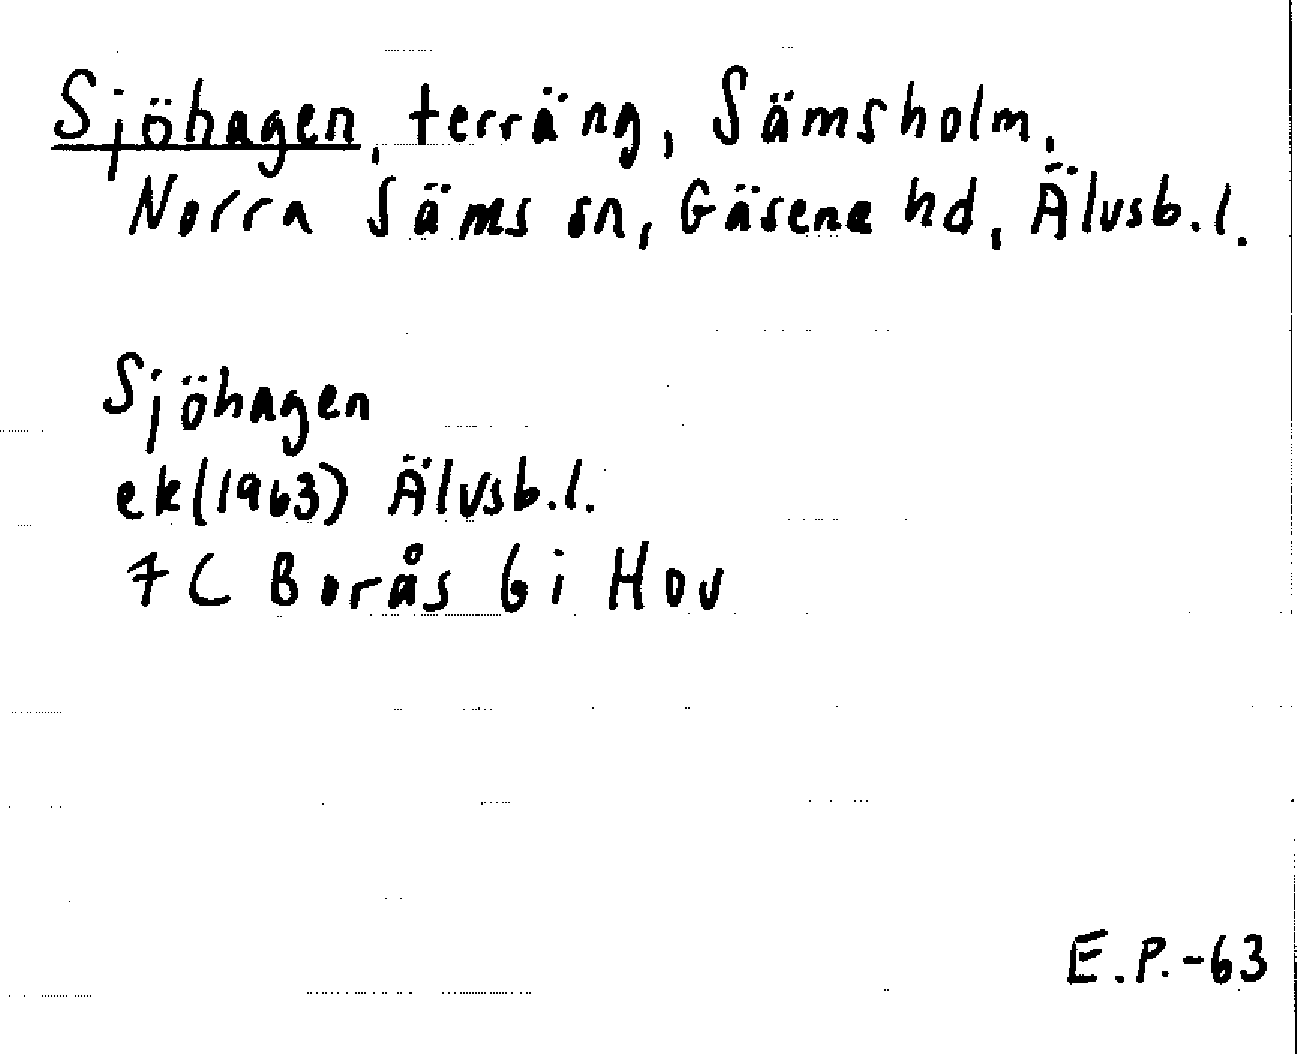 Sjöhagen, terräng, Sämsholm,
Norra Säms sn, Gäsene hd, Älvsb.l.
Sjöhagen
ek(1963) Älvsb.l.
7C Borås 6i Hov
E.P.-63